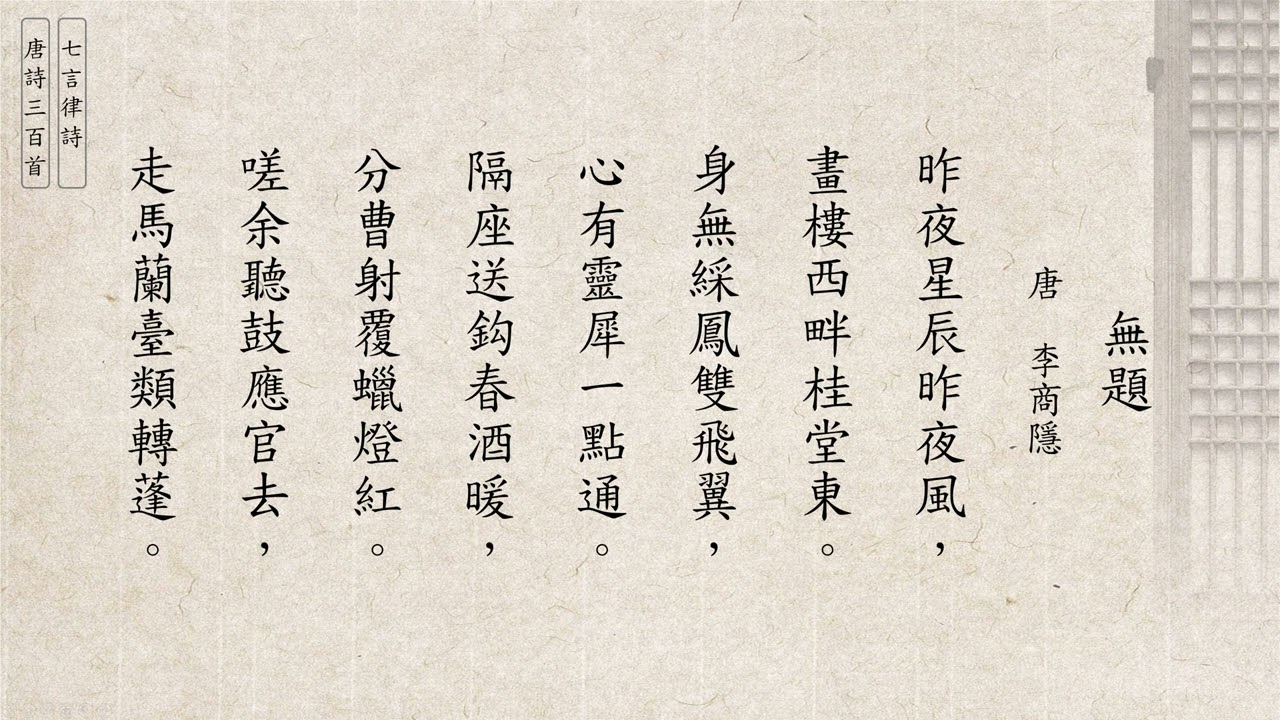 無題
唐 李商隱
昨夜星辰昨夜風，
畫樓西畔桂堂東。
身無綵鳳雙飛翼，
心有靈犀一點通。
隔座送鈎春酒暖，
分曹射覆蠟燈紅。
嗟余聽鼓應官去，
走馬蘭臺類轉蓬。
七言律詩
唐詩三百首